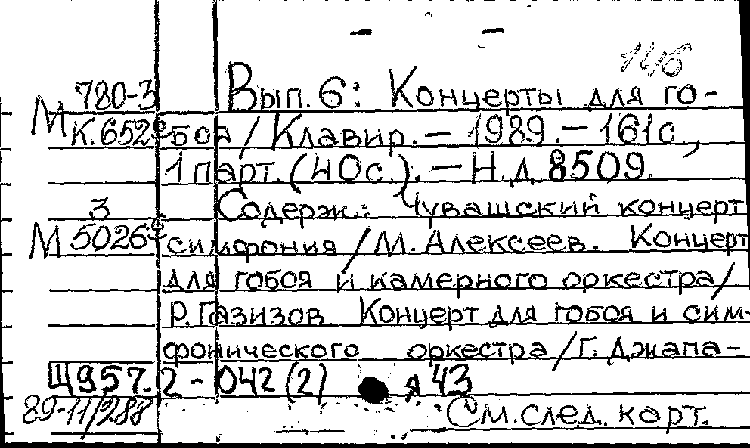 780-3 Вып. 6: Концерты для го-
М К.652 боя / Клавир. — 1989. — 161с.,
1 парт. (40с.). — Н.д. 8509.
3 Содерж.: Чувашский концерт
М 5026 симфония / М. Алексеев. Концерт
для гобоя и камерного оркестра /
Р. Газизов. Концерт для гобоя и сим-
фонического оркестра / Г. Джапа-
Щ957.2-042(2) я43
89-11/288 См. след. карт.